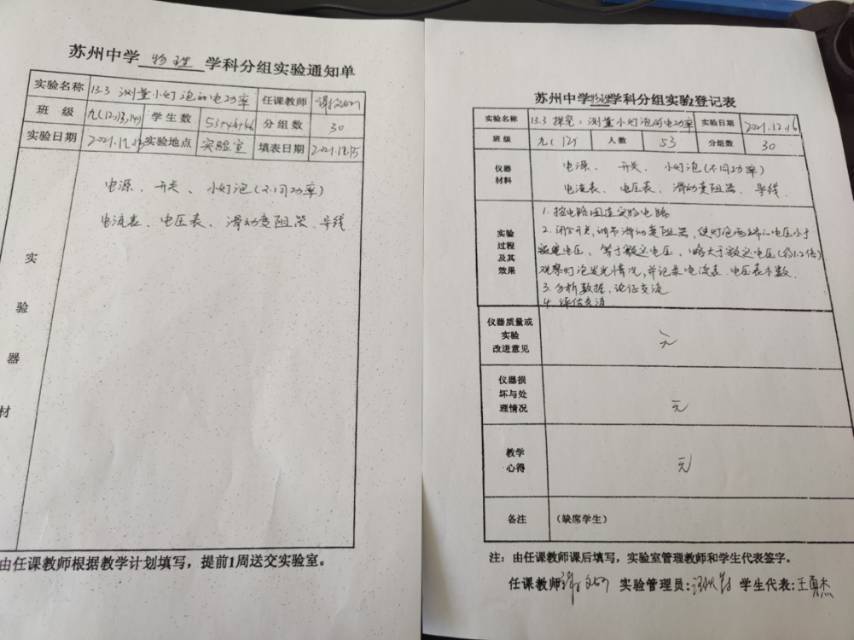 苏州中学 物理 学科分组实验通知单
实验名称 13.3 测量小灯泡的电功率 任课教师
班 级 学生数 分组数 30
实验日期 实验地点 实验室 填表日期
电源、开关、小灯泡(不同功率)
电流表、电压表、滑动变阻器、导线
实
验
器
材
由任课教师根据教学计划填写，提前1周送交实验室。
苏州中学物理学科分组实验登记表
实验名称 13.3 探究：测量小灯泡的电功率 实验日期 2021.12.16
班级 九(12) 人数 53 分组数 30
仪器
材料
电源、开关、小灯泡(不同功率)
电流表、电压表、滑动变阻器、导线
实验
过程
及其
效果
1. 按电路图连实验电路
2. 闭合开关,调节滑动变阻器,使灯泡两端电压小于
额定电压、等于额定电压、略大于额定电压(约1.2倍)
观察灯泡发光情况,并记录电流表、电压表示数.
3. 分析数据,论证交流
4. 评估交流
仪器质量或
实验
改进意见
无
仪器损
坏与处
理情况
无
教学
心得
无
备注 (缺席学生)
注：由任课教师课后填写，实验室管理教师和学生代表签字。
任课教师 实验管理员: 学生代表: